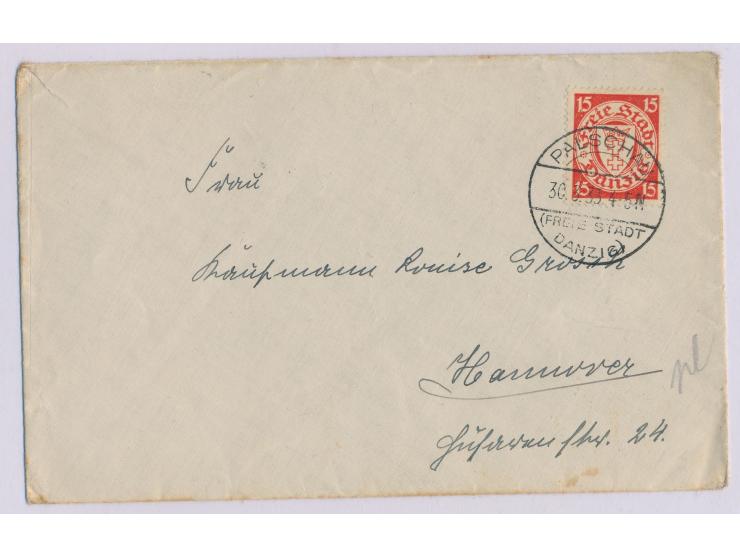 15 15
Freie Stadt
Danzig
15 15
PALSCHAU
30.3.35.4-5N
(FREIE STADT
DANZIG)
Frau
Kaufmann Louise Grosch
Hannover
Husarenstr. 24.
pl